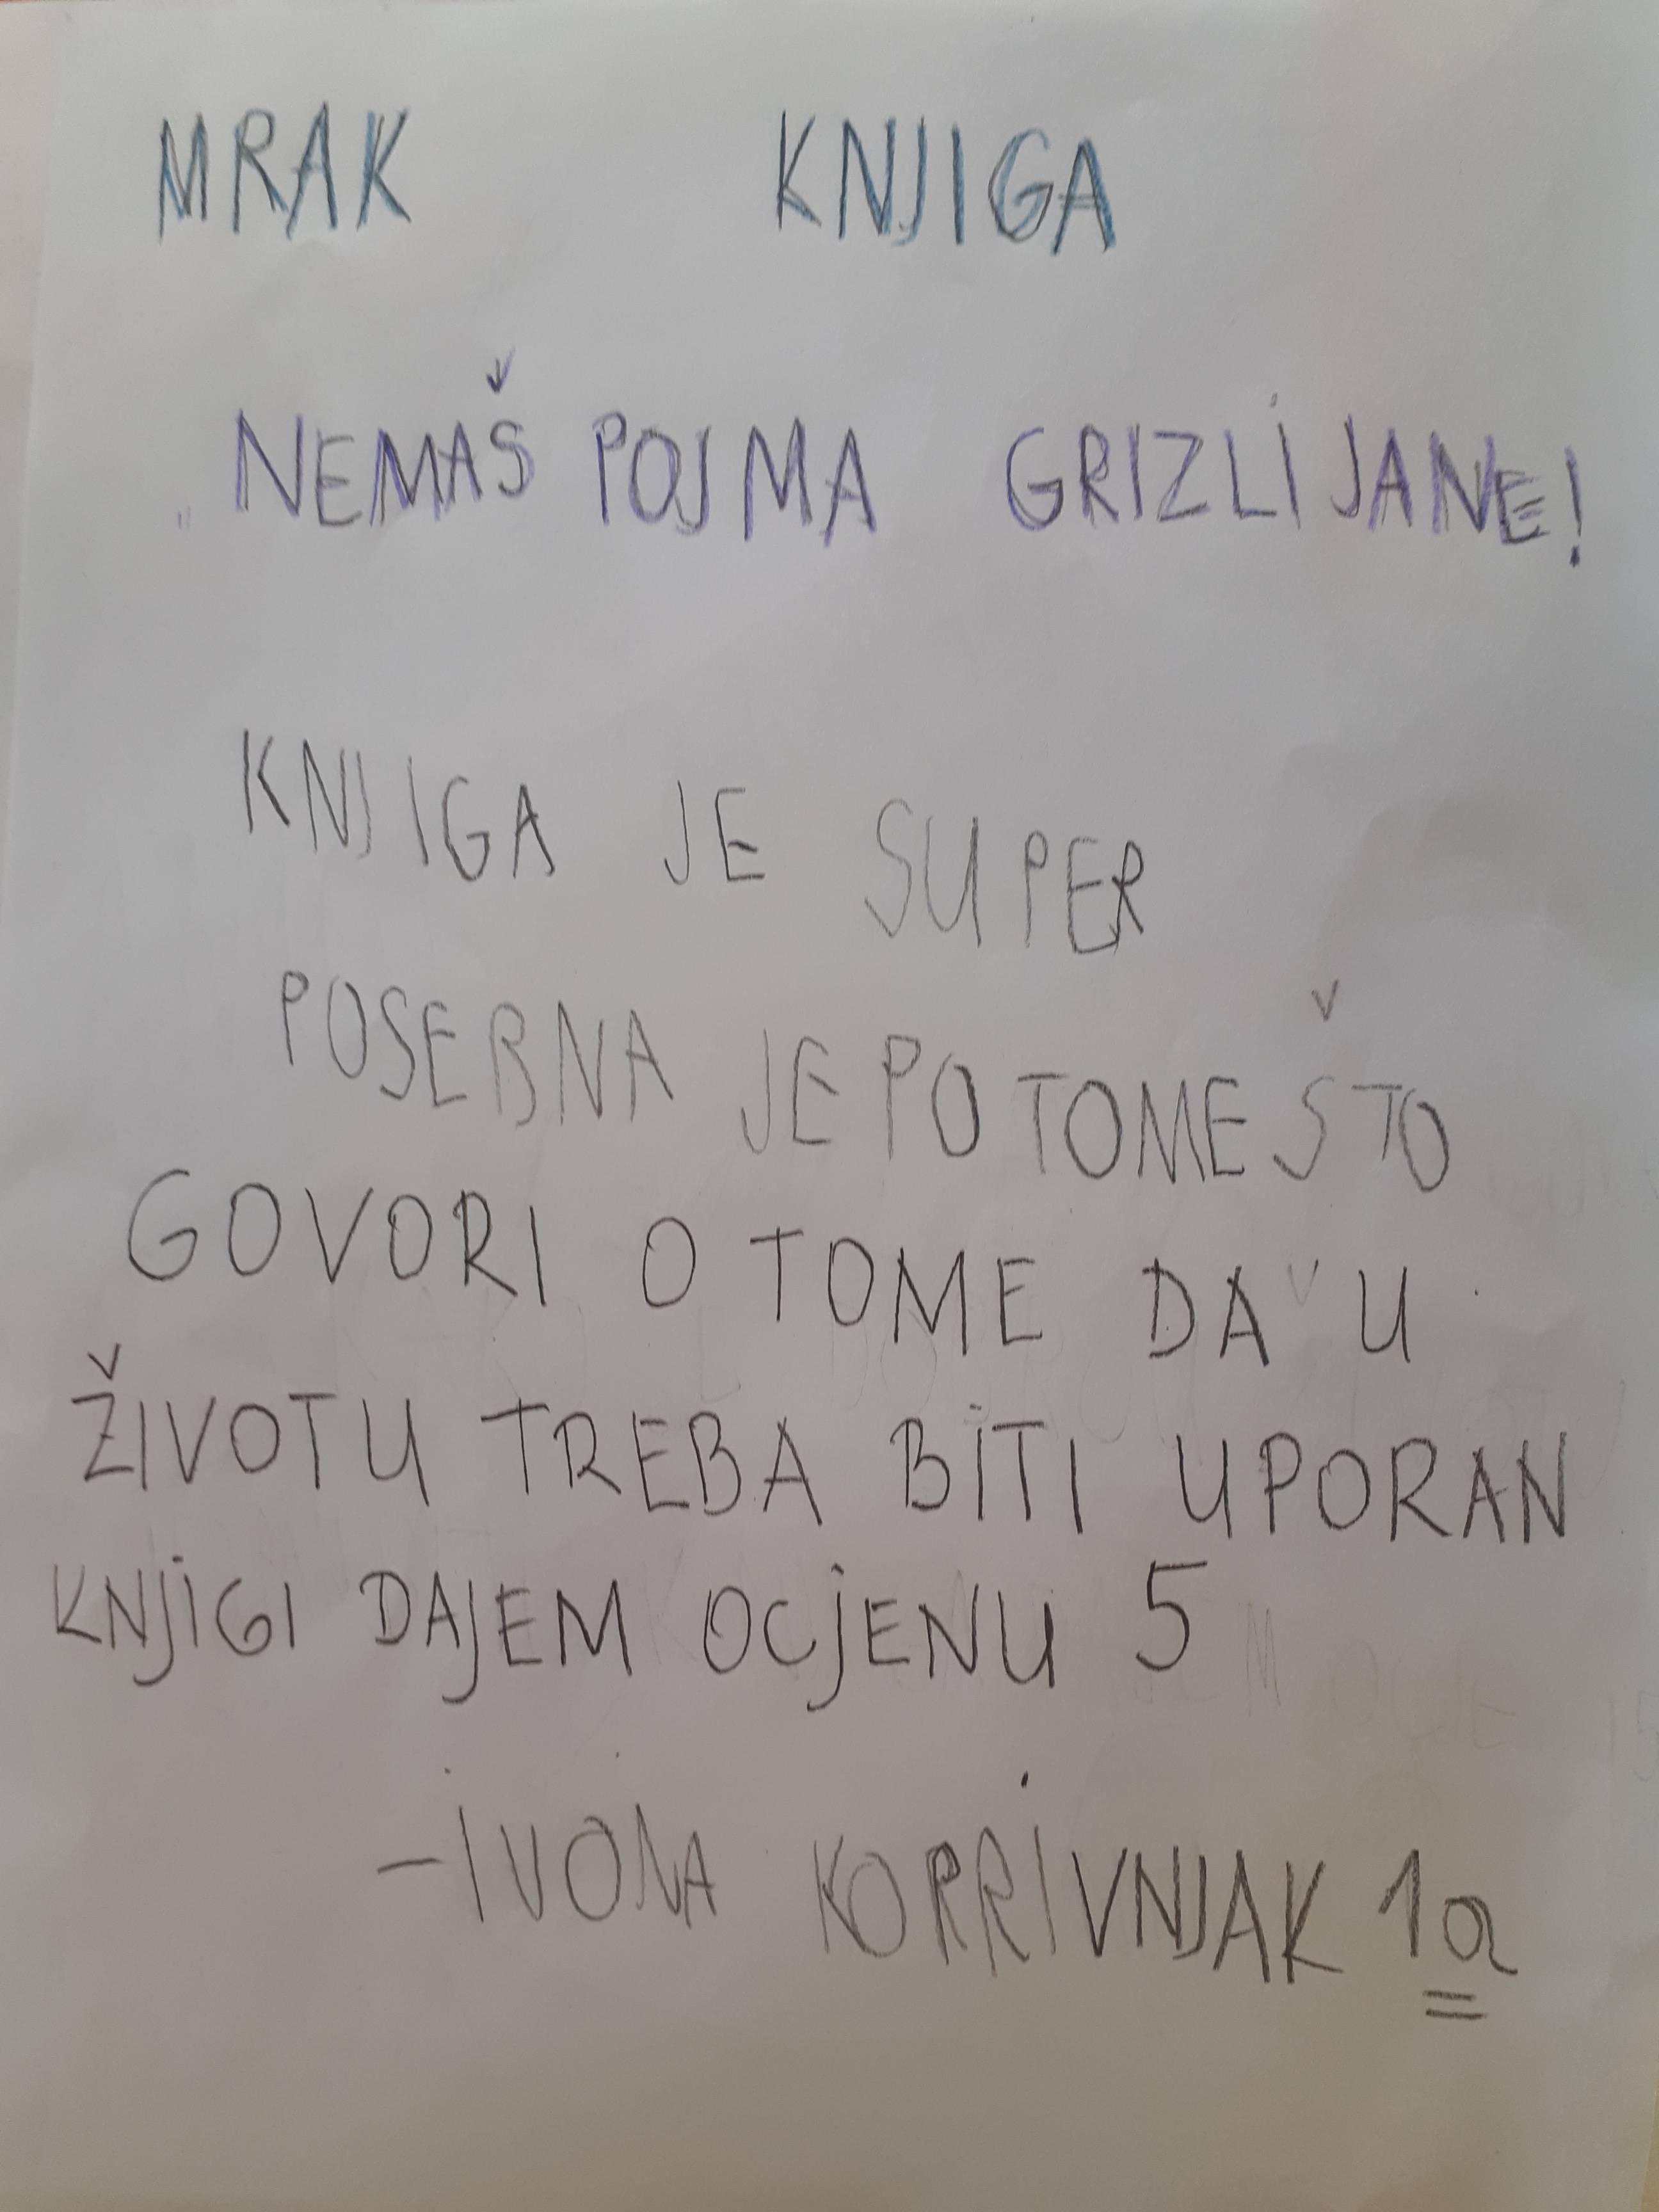 MRAK KNJIGA
„NEMAŠ POJMA GRIZLIJANE!
KNJIGA JE SUPER
POSEBNA JE PO TOME ŠTO
GOVORI O TOME DA U
ŽIVOTU TREBA BITI UPORAN
KNJIGI DAJEM OCJENU 5
-IVONA KOPRIVNJAK 1a